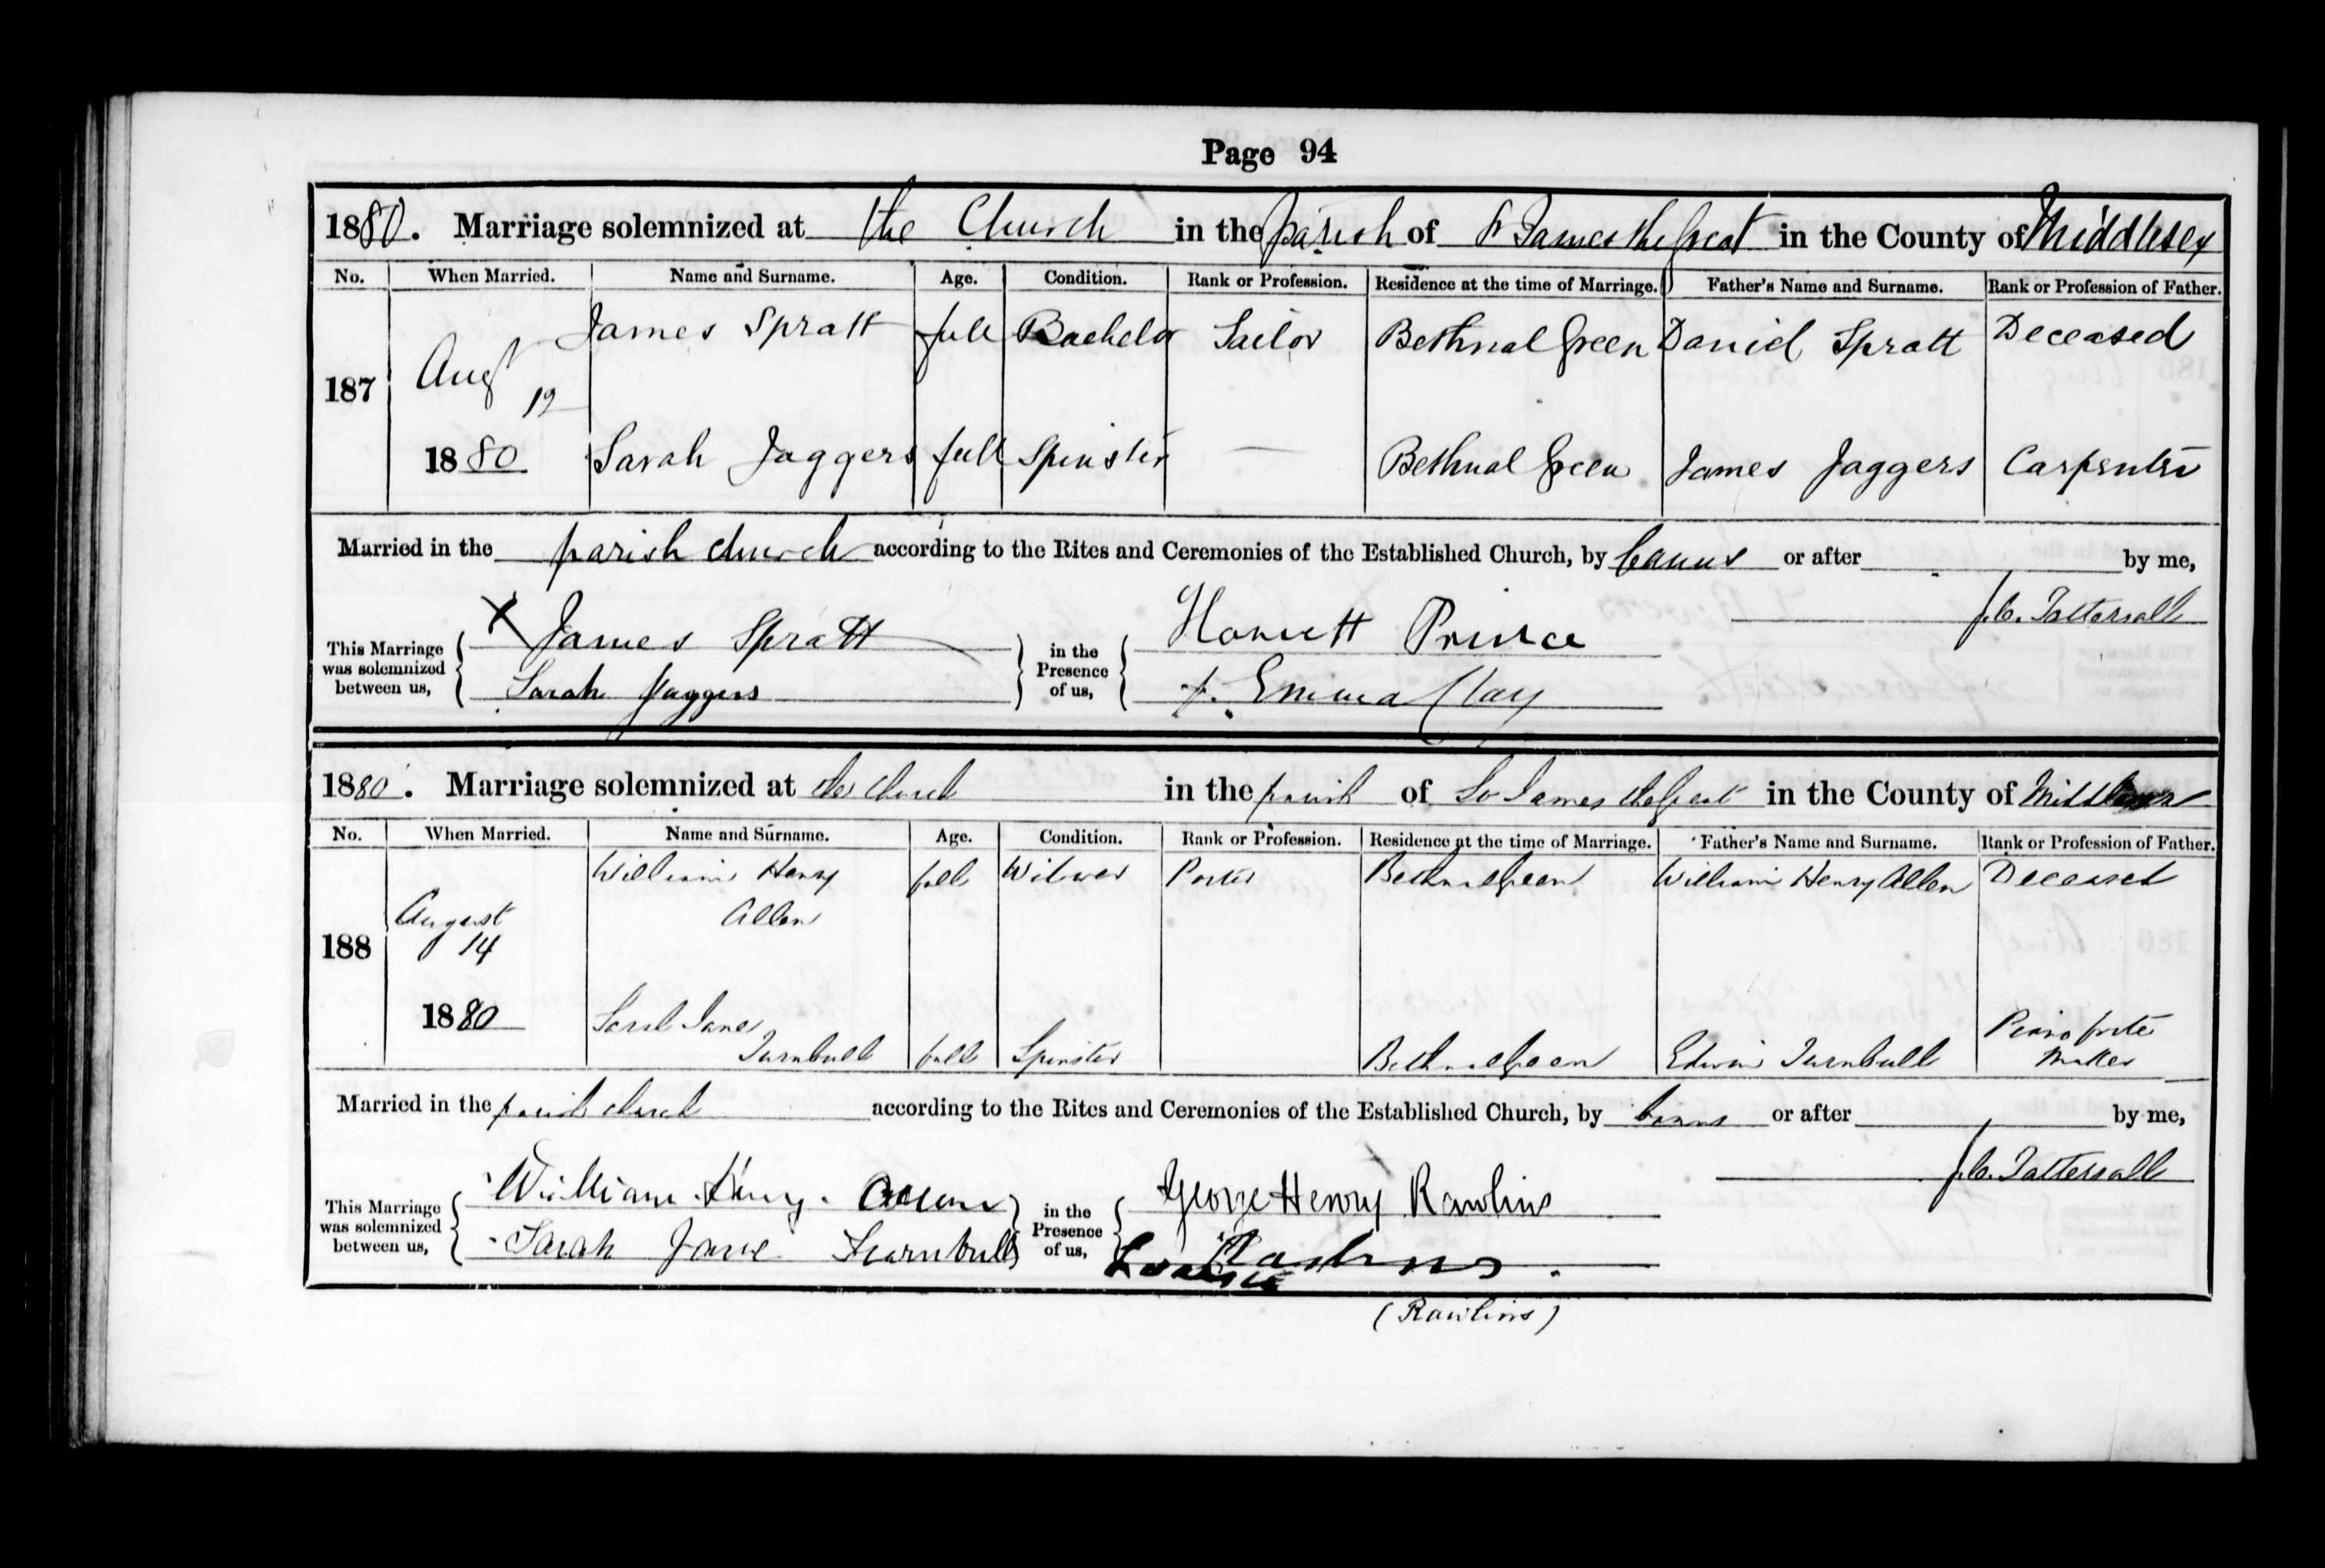 Page 94
1880. Marriage solemnized at the Church in the parish of St James the Great in the County of Middlesex
No. When Married. Name and Surname. Age. Condition. Rank or Profession. Residence at the time of Marriage. Father's Name and Surname. Rank or Profession of Father.
James Spratt full Bachelor Sailor Bethnal Green Daniel Spratt Deceased
187 Augt 12
1880 Sarah Jaggers full Spinster — Bethnal Green James Jaggers Carpenter
Married in the parish church according to the Rites and Ceremonies of the Established Church, by banns or after by me,
J. C. Tattersall
This Marriage was solemnized between us, X James Spratt in the Presence of us, Harriett Prince
Sarah Jaggers Emma Clay
1880. Marriage solemnized at the Church in the parish of St James the Great in the County of Middlesex
No. When Married. Name and Surname. Age. Condition. Rank or Profession. Residence at the time of Marriage. Father's Name and Surname. Rank or Profession of Father.
William Henry full Widower Porter Bethnal Green William Henry Allen Deceased
August Allen
188 14
1880 Sarah Jane Piano forte
Turnbull full Spinster Bethnal Green Edwin Turnbull Maker
Married in the parish church according to the Rites and Ceremonies of the Established Church, by banns or after by me,
J. C. Tattersall
This Marriage was solemnized between us, William Henry Allen in the Presence of us, George Henry Rawlins
Sarah Jane Turnbull Louisa
(Rawlins)